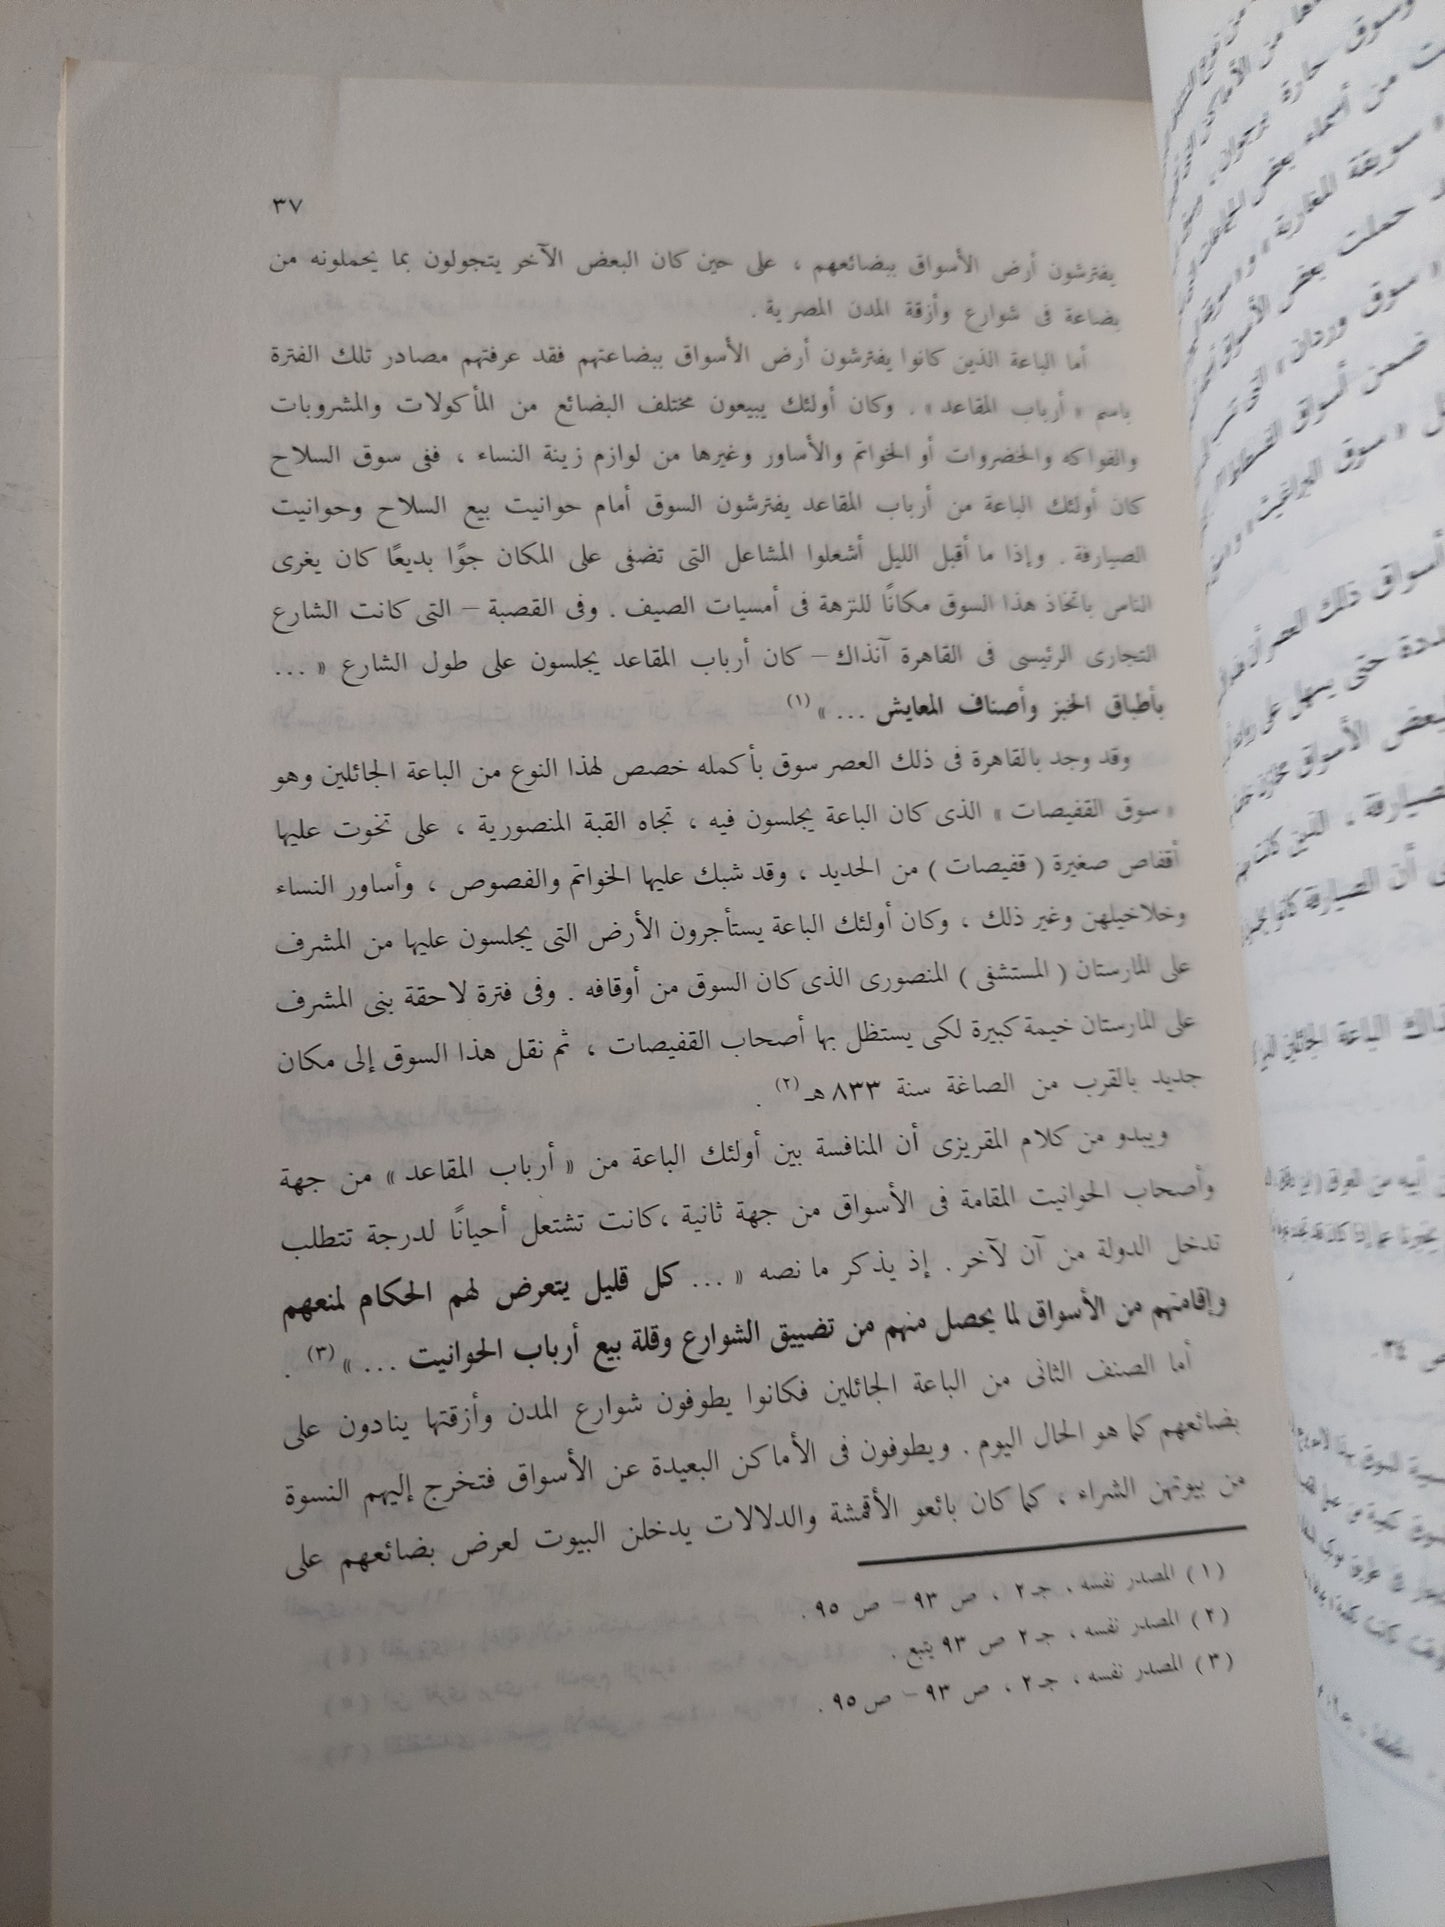 ٣٧
يفترشون أرض الأسواق ببضائعهم ، على حين كان البعض الآخر يتجولون بما يحملونه من
بضاعة فى شوارع وأزقة المدن المصرية .
أما الباعة الذين كانوا يفترشون أرض الأسواق ببضاعتهم فقد عرفتهم مصادر تلك الفترة
باسم « أرباب المقاعد » . وكان أولئك يبيعون مختلف البضائع من المأكولات والمشروبات
والفواكه والخضروات أو الخواتم والأساور وغيرها من لوازم زينة النساء ، ففى سوق السلاح
كان أولئك الباعة من أرباب المقاعد يفترشون السوق أمام حوانيت بيع السلاح وحوانيت
الصيارفة . وإذا ما أقبل الليل أشعلوا المشاعل التى تضفى على المكان جوًا بديعًا كان يغرى
الناس باتخاذ هذا السوق مكانًا للنزهة فى أمسيات الصيف . وفى القصبة – التى كانت الشارع
التجارى الرئيسى فى القاهرة آنذاك – كان أرباب المقاعد يجلسون على طول الشارع « ...
بأطباق الخبز وأصناف المعايش ... » (١)
وقد وجد بالقاهرة فى ذلك العصر سوق بأكمله خصص لهذا النوع من الباعة الجائلين وهو
« سوق القفيصات » الذى كان الباعة يجلسون فيه ، تجاه القبة المنصورية ، على تخوت عليها
أقفاص صغيرة ( قفيصات ) من الحديد ، وقد شبك عليها الخواتم والفصوص ، وأساور النساء
وخلاخيلهن وغير ذلك ، وكان أولئك الباعة يستأجرون الأرض التى يجلسون عليها من المشرف
على المارستان ( المستشفى ) المنصورى الذى كان السوق من أوقافه . وفى فترة لاحقة بنى المشرف
على المارستان خيمة كبيرة لكى يستظل بها أصحاب القفيصات ، ثم نقل هذا السوق إلى مكان
جديد بالقرب من الصاغة سنة ٨٣٣ هـ (٢) .
ويبدو من كلام المقريزى أن المنافسة بين أولئك الباعة من « أرباب المقاعد » من جهة
وأصحاب الحوانيت المقامة فى الأسواق من جهة ثانية ،كانت تشتعل أحيانًا لدرجة تتطلب
تدخل الدولة من آن لآخر . إذ يذكر ما نصه « ... كل قليل يتعرض لهم الحكام لمنعهم
وإقامتهم من الأسواق لما يحصل منهم من تضييق الشوارع وقلة بيع أرباب الحوانيت ... » (٣) .
أما الصنف الثانى من الباعة الجائلين فكانوا يطوفون شوارع المدن وأزقتها ينادون على
بضائعهم كما هو الحال اليوم . ويطوفون فى الأماكن البعيدة عن الأسواق فتخرج إليهم النسوة
من بيوتهن الشراء ، كما كان بائعو الأقمشة والدلالات يدخلن البيوت لعرض بضائعهم على
(١) المصدر نفسه ، جـ ٢ ، ص ٩٣ – ص ٩٥ .
(٢) المصدر نفسه ، جـ ٢ ص ٩٣ يتبع .
(٣) المصدر نفسه ، جـ ٢ ، ص ٩٣ – ص ٩٥ .